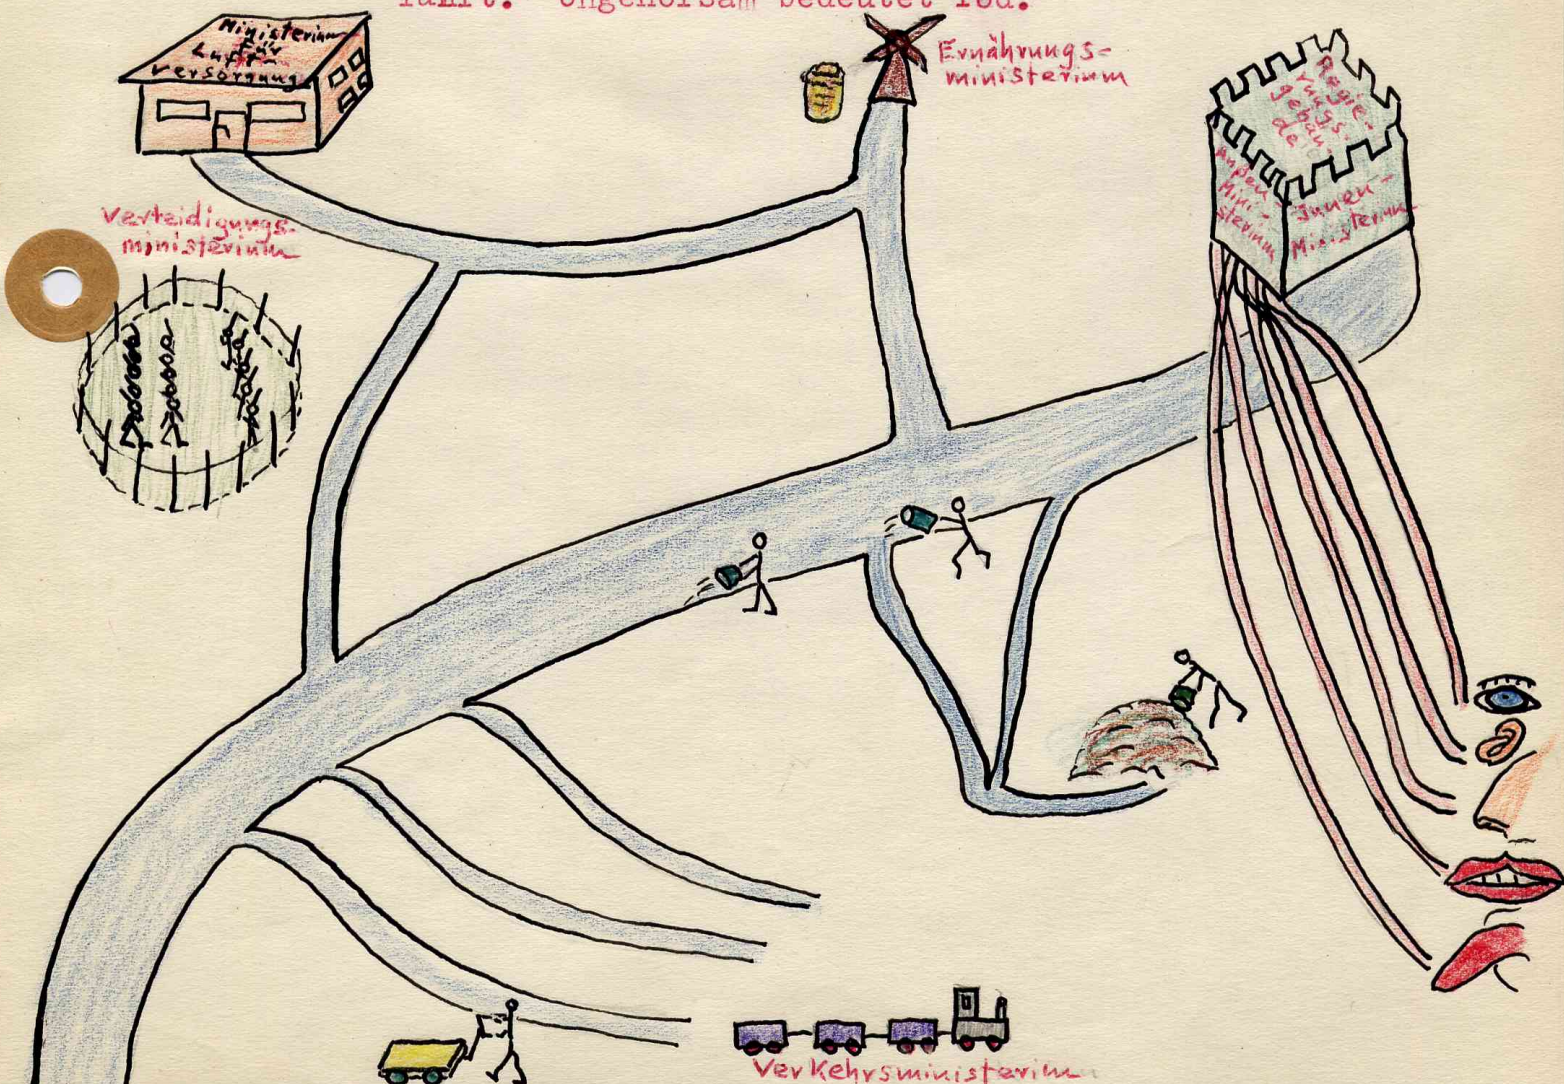 führt. Ungehorsam bedeutet Tod.
Ministerium
für
Luft-
versorgung
Ernährungs-
ministerium
Regie-
rungs-
gebäu-
de
Außen-
Mini-
sterium
Innen-
Ministerium
Verteidigungs-
ministerium
Verkehrsministerium